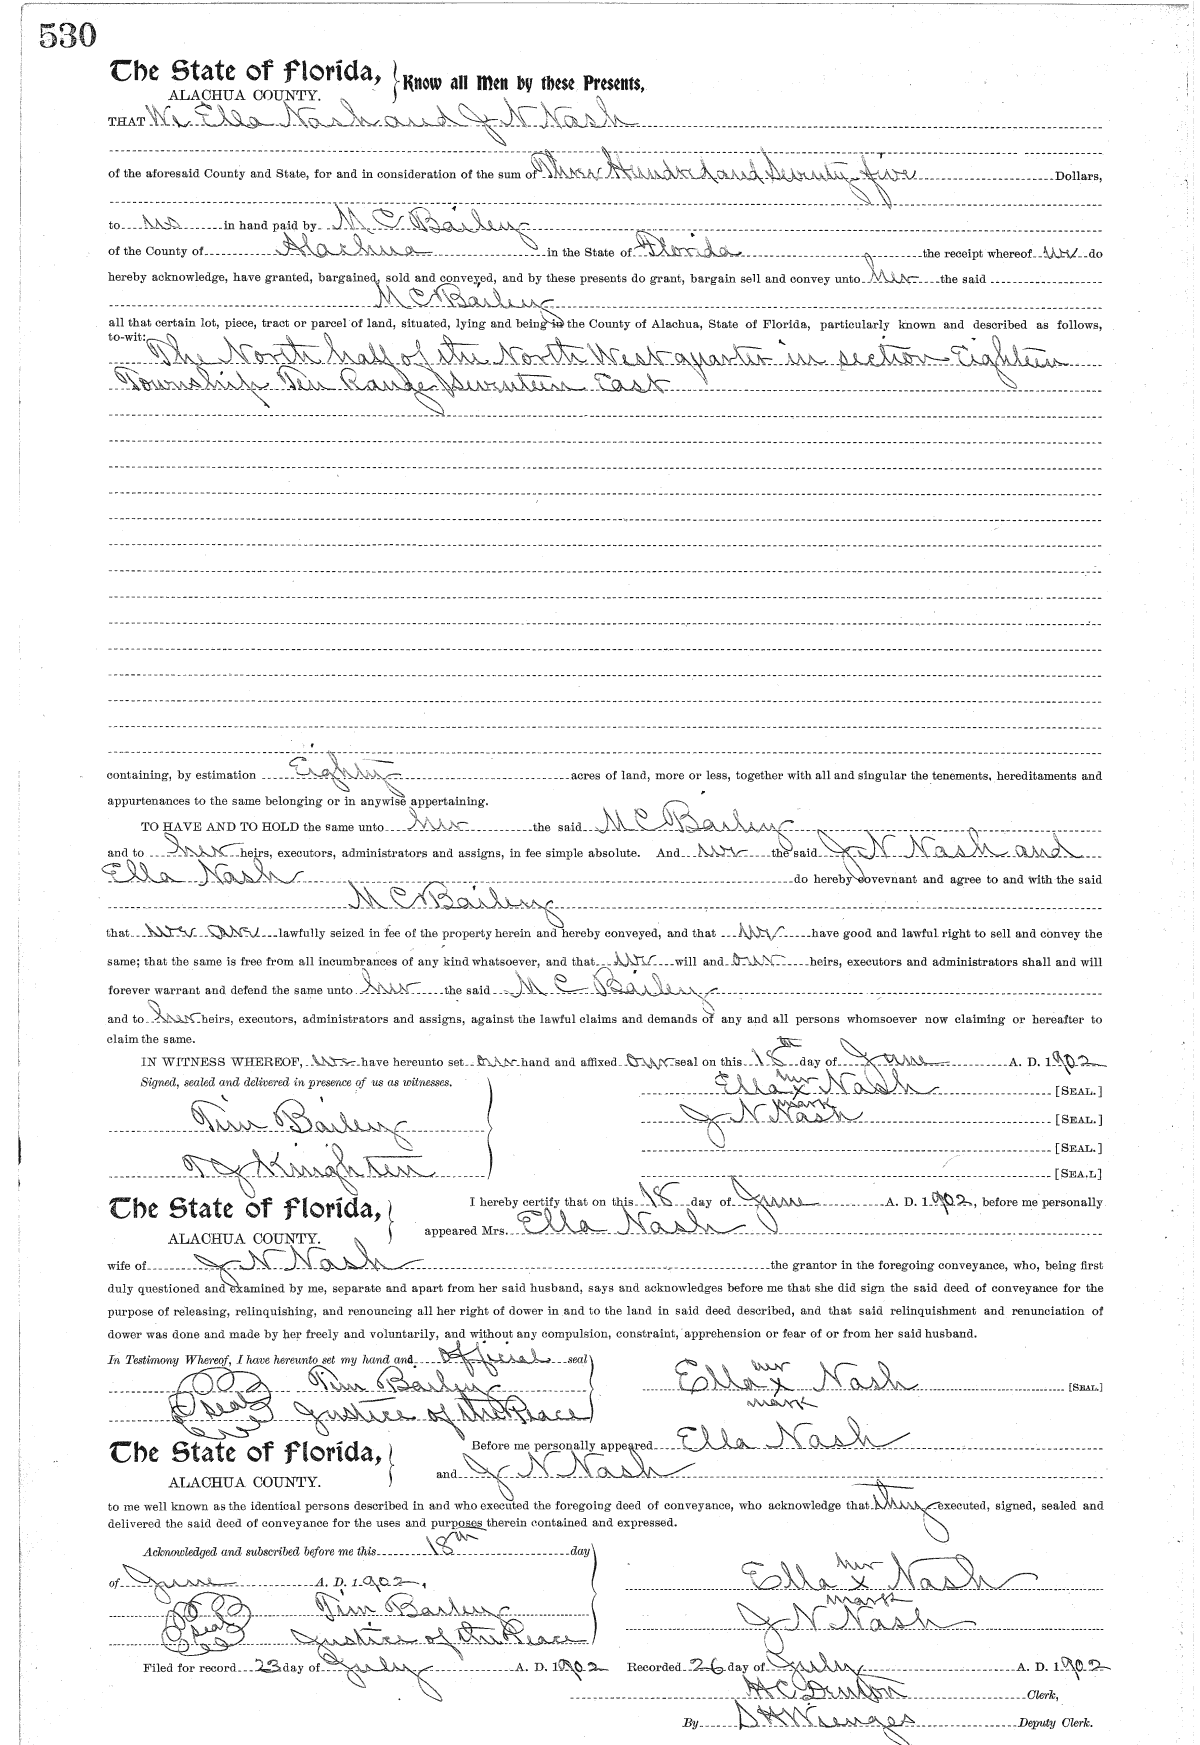 530
The State of Florida, Know all Men by these Presents,
ALACHUA COUNTY.
THAT We Ella Nash and J N Nash
of the aforesaid County and State, for and in consideration of the sum of Three Hundred and Seventy five Dollars,
to us in hand paid by M C Bailey
of the County of Alachua in the State of Florida the receipt whereof we do
hereby acknowledge, have granted, bargained, sold and conveyed, and by these presents do grant, bargain sell and convey unto her the said
M C Bailey
all that certain lot, piece, tract or parcel of land, situated, lying and being in the County of Alachua, State of Florida, particularly known and described as follows,
to-wit: The North half of the North West quarter in section Eighteen
Township Ten Range Seventeen East
containing, by estimation Eighty acres of land, more or less, together with all and singular the tenements, hereditaments and
appurtenances to the same belonging or in anywise appertaining.
TO HAVE AND TO HOLD the same unto her the said M C Bailey
and to her heirs, executors, administrators and assigns, in fee simple absolute. And we the said J N Nash and
Ella Nash do hereby covevnant and agree to and with the said
M C Bailey
that we are lawfully seized in fee of the property herein and hereby conveyed, and that we have good and lawful right to sell and convey the
same; that the same is free from all incumbrances of any kind whatsoever, and that we will and our heirs, executors and administrators shall and will
forever warrant and defend the same unto her the said M C Bailey
and to her heirs, executors, administrators and assigns, against the lawful claims and demands of any and all persons whomsoever now claiming or hereafter to
claim the same.
IN WITNESS WHEREOF, we have hereunto set our hand and affixed our seal on this 18th day of June A. D. 1902
Signed, sealed and delivered in presence of us as witnesses.
Ella her x mark Nash [SEAL.]
Tim Bailey J N Nash [SEAL.]
[SEAL.]
T J Knighten [SEA.L]
The State of Florida, I hereby certify that on this 18 day of June A. D. 1902, before me personally
ALACHUA COUNTY. appeared Mrs. Ella Nash
wife of J N Nash the grantor in the foregoing conveyance, who, being first
duly questioned and examined by me, separate and apart from her said husband, says and acknowledges before me that she did sign the said deed of conveyance for the
purpose of releasing, relinquishing, and renouncing all her right of dower in and to the land in said deed described, and that said relinquishment and renunciation of
dower was done and made by her freely and voluntarily, and without any compulsion, constraint, apprehension or fear of or from her said husband.
In Testimony Whereof, I have hereunto set my hand and official seal
Tim Bailey Ella her x mark Nash [SEAL.]
seal Justice of the Peace
The State of Florida, Before me personally appeared Ella Nash
ALACHUA COUNTY. and J N Nash
to me well known as the identical persons described in and who executed the foregoing deed of conveyance, who acknowledge that they executed, signed, sealed and
delivered the said deed of conveyance for the uses and purposes therein contained and expressed.
Acknowledged and subscribed before me this 18th day
of June A. D. 1902, Ella her x mark Nash
Tim Bailey
seal Justice of the Peace J N Nash
Filed for record 23 day of July A. D. 1902 Recorded 26 day of July A. D. 1902
H C Denton Clerk,
By S H Wienges Deputy Clerk.